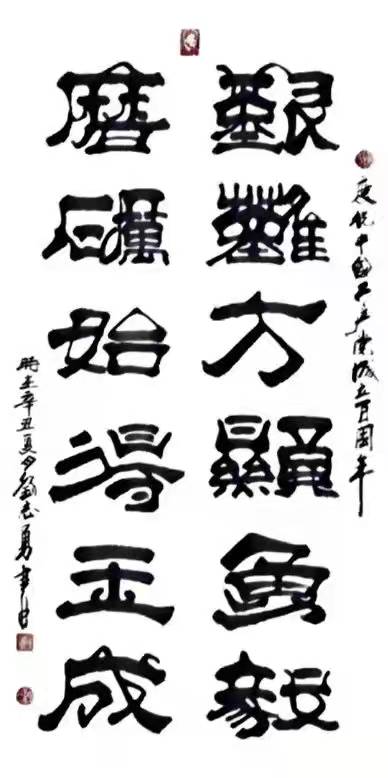 慶祝中國共產黨成立百周年
艱難方顯勇毅
磨礪始得玉成
時在辛丑夏月劉志勇書